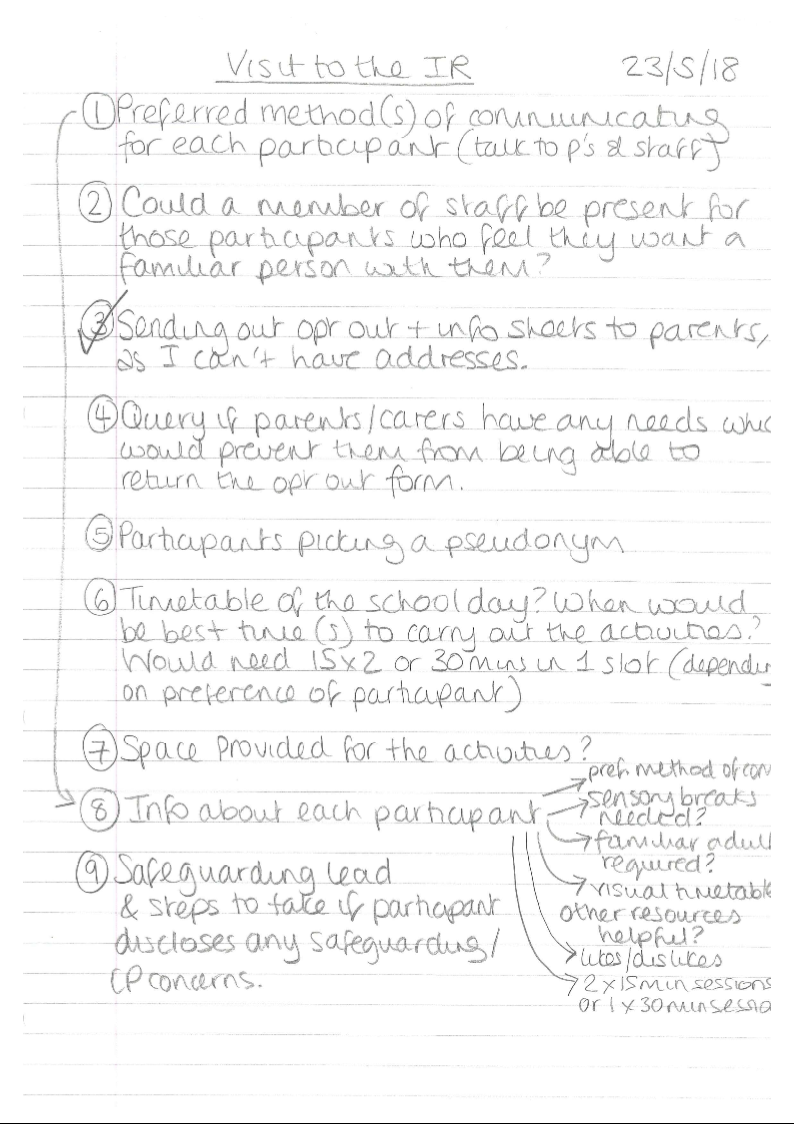 Visit to the IR 23/5/18
① Preferred method(s) of communicating
for each participant (talk to p's & staff)
② Could a member of staff be present for
those participants who feel they want a
familiar person with them?
③ Sending out opt out + info sheets to parents,
as I can't have addresses.
④ Query if parents/carers have any needs whic
would prevent them from being able to
return the opt out form.
⑤ Participants picking a pseudonym
⑥ Timetable of the school day? When would
be best time(s) to carry out the activities?
Would need 15x2 or 30 mins in 1 slot (dependin
on preference of participant)
⑦ Space provided for the activities?
⑧ Info about each participant
pref. method of com
sensory breaks
needed?
familiar adult
required?
visual timetable
other resources
helpful?
likes/dislikes
2 x 15 min sessions
or 1 x 30 min sessio
⑨ Safeguarding lead
& steps to take if participant
discloses any safeguarding/
CP concerns.